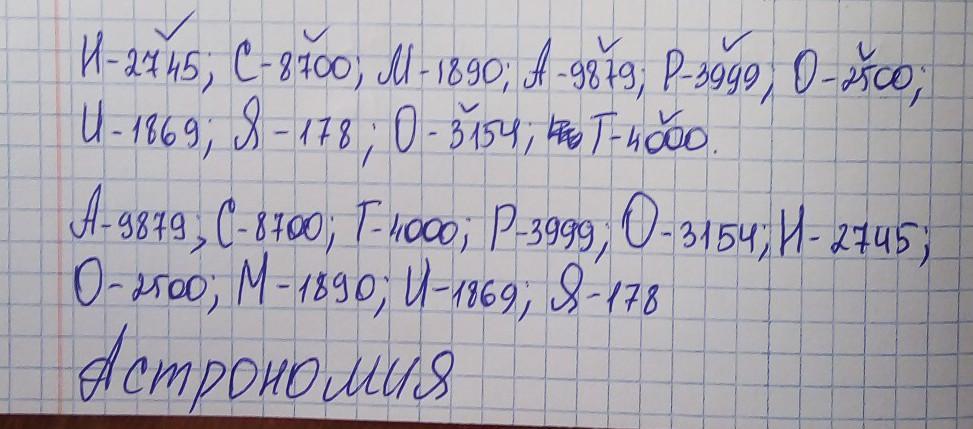 Н-2745; С-8700; М-1890; А-9879; Р-3999; О-2500;
И-1869; Я-178; О-3154; Т-4000.
А-9879; С-8700; Т-4000; Р-3999; О-3154; Н-2745;
О-2500; М-1890; И-1869; Я-178
Астрономия